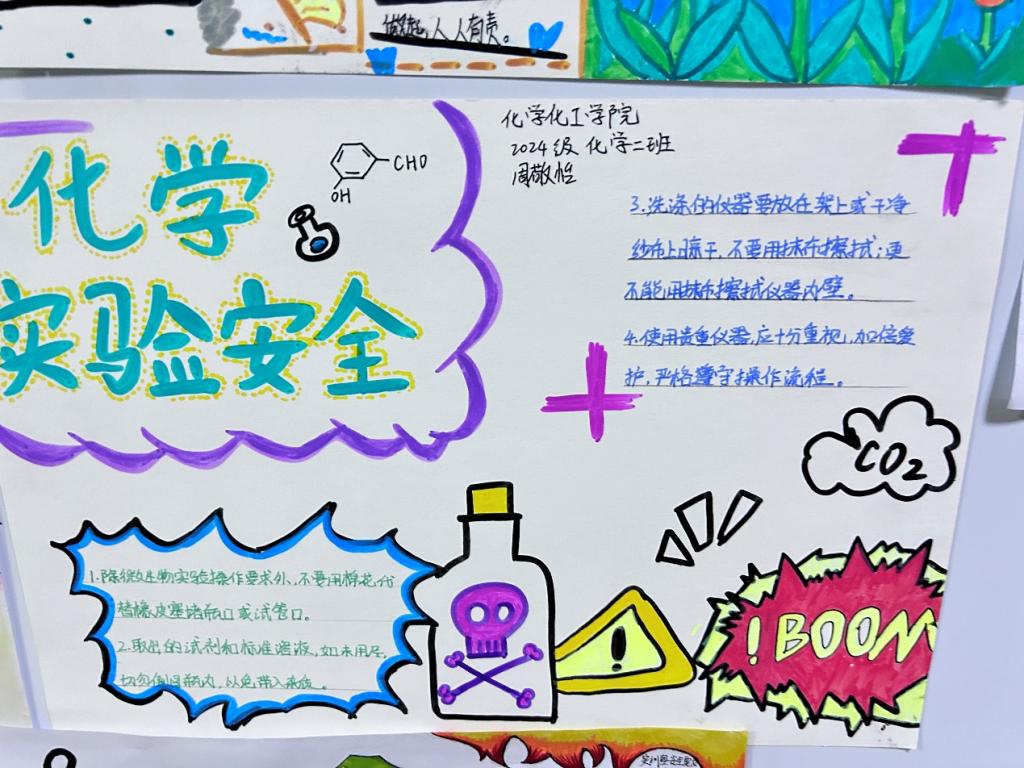 做起,人人有责。
化学
实验安全
CHO
OH
化学化工学院
2024级 化学二班
周敬怡
3.洗涤的仪器要放在架上或干净
纱布上晾干,不要用抹布擦拭;更
不能用抹布擦拭仪器内壁。
4.使用贵重仪器,应十分重视,加倍爱
护,严格遵守操作流程。
CO2
1.除微生物实验操作要求外,不要用棉花代
替橡皮塞堵瓶口或试管口。
2.取出的试剂和标准溶液,如未用尽,
切勿倒回瓶内,以免带入杂质。
!
!BOOM